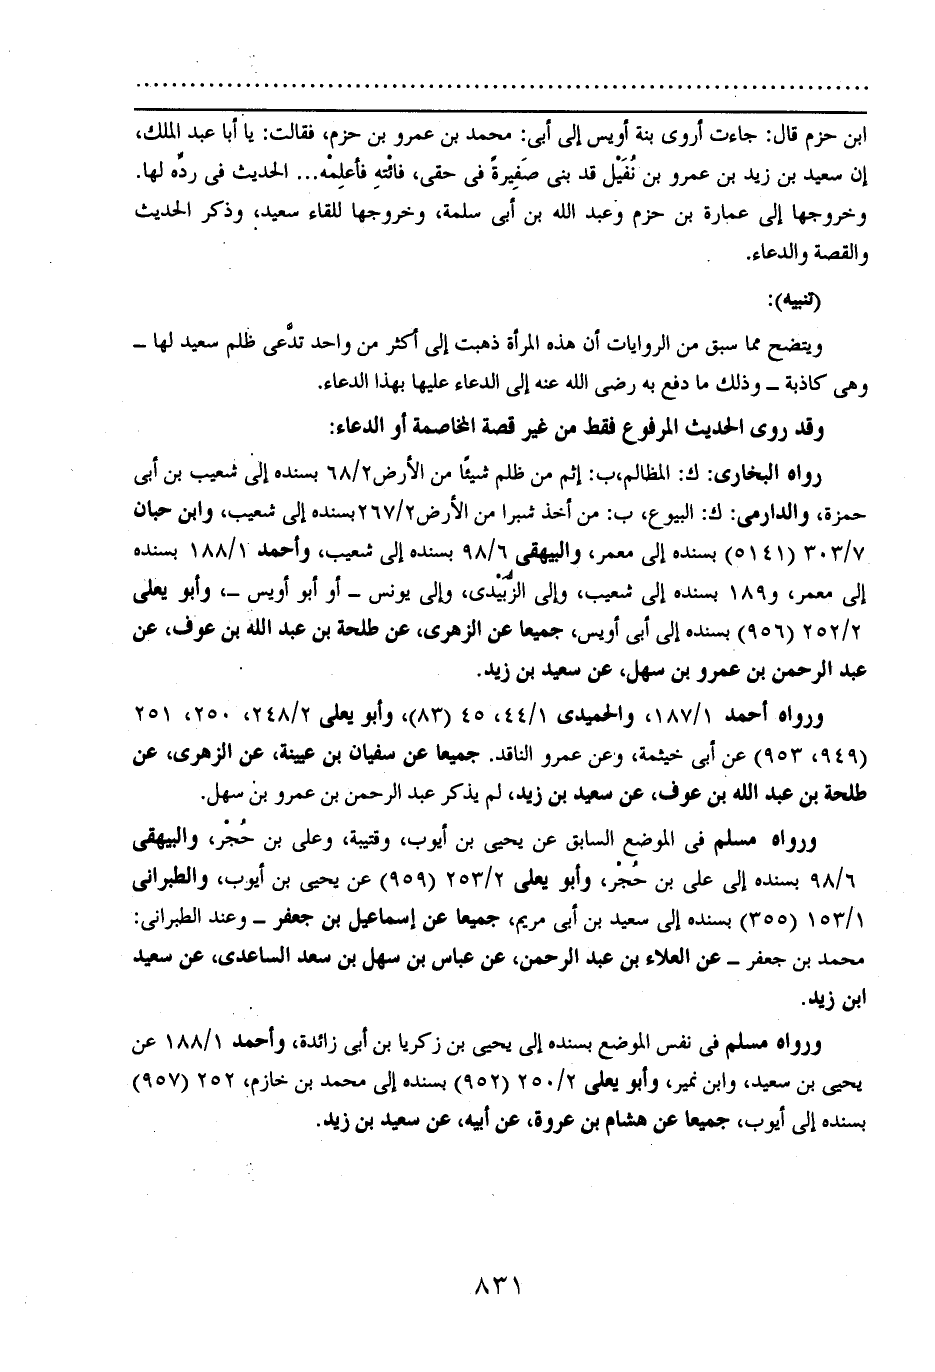 ابن حزم قال: جاءت أروى بنة أويس إلى أبى: محمد بن عمرو بن حزم، فقالت: يا أبا عبد الملك،
إن سعيد بن زيد بن عمرو بن نُفَيْل قد بنى ضَفِيرةً فى حقى، فائْتهِ فأعلِمْه... الحديث فى ردّه لها.
وخروجها إلى عمارة بن حزم وعبد الله بن أبى سلمة، وخروجها للقاء سعيد، وذكر الحديث
والقصة والدعاء.
(تنبيه):
ويتضح مما سبق من الروايات أن هذه المرأة ذهبت إلى أكثر من واحد تدَّعى ظلم سعيد لها ـ
وهى كاذبة ـ وذلك ما دفع به رضى الله عنه إلى الدعاء عليها بهذا الدعاء.
وقد روى الحديث المرفوع فقط من غير قصة المخاصمة أو الدعاء:
رواه البخارى: ك: المظالم،ب: إثم من ظلم شيئًا من الأرض٦٨/٢ بسنده إلى شعيب بن أبى
حمزة، والدارمى: ك: البيوع، ب: من أخذ شبرا من الأرض٢٦٧/٢بسنده إلى شعيب، وابن حبان
٣٠٣/٧ (٥١٤١) بسنده إلى معمر، والبيهقى ٩٨/٦ بسنده إلى شعيب، وأحمد ١٨٨/١ بسنده
إلى معمر، و١٨٩ بسنده إلى شعيب، وإلى الزبَيْدى، وإلى يونس ـ أو أبو أويس ـ، وأبو يعلى
٢٥٢/٢ (٩٥٦) بسنده إلى أبى أويس، جميعا عن الزهرى، عن طلحة بن عبد الله بن عوف، عن
عبد الرحمن بن عمرو بن سهل، عن سعيد بن زيد.
ورواه أحمد ١٨٧/١، والحميدى ٤٤/١، ٤٥ (٨٣)، وأبو يعلى ٢٤٨/٢، ٢٥٠، ٢٥١
(٩٤٩، ٩٥٣) عن أبى خيثمة، وعن عمرو الناقد. جميعا عن سفيان بن عيينة، عن الزهرى، عن
طلحة بن عبد الله بن عوف، عن سعيد بن زيد، لم يذكر عبد الرحمن بن عمرو بن سهل.
ورواه مسلم فى الموضع السابق عن يحيى بن أيوب، وقتيبة، وعلى بن حُجْر، والبيهقى
٩٨/٦ بسنده إلى على بن حُجْر، وأبو يعلى ٢٥٣/٢ (٩٥٩) عن يحيى بن أيوب، والطبرانى
١٥٣/١ (٣٥٥) بسنده إلى سعيد بن أبى مريم، جميعا عن إسماعيل بن جعفر ـ وعند الطبرانى:
محمد بن جعفر ـ عن العلاء بن عبد الرحمن، عن عباس بن سهل بن سعد الساعدى، عن سعيد
ابن زيد.
ورواه مسلم فى نفس الموضع بسنده إلى يحيى بن زكريا بن أبى زائدة، وأحمد ١٨٨/١ عن
يحيى بن سعيد، وابن نمير، وأبو يعلى ٢٥٠/٢ (٩٥٢) بسنده إلى محمد بن خازم، ٢٥٢ (٩٥٧)
بسنده إلى أيوب، جميعا عن هشام بن عروة، عن أبيه، عن سعيد بن زيد.
٨٣١